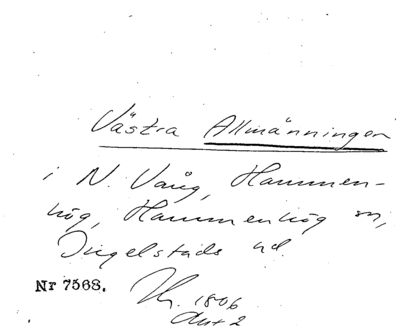 Västra Allmänningen
i N. Vång, Hammen-
hög, Hammenhög sn,
Ingelstads hd.
Nr 7568.
1806
Akt 2